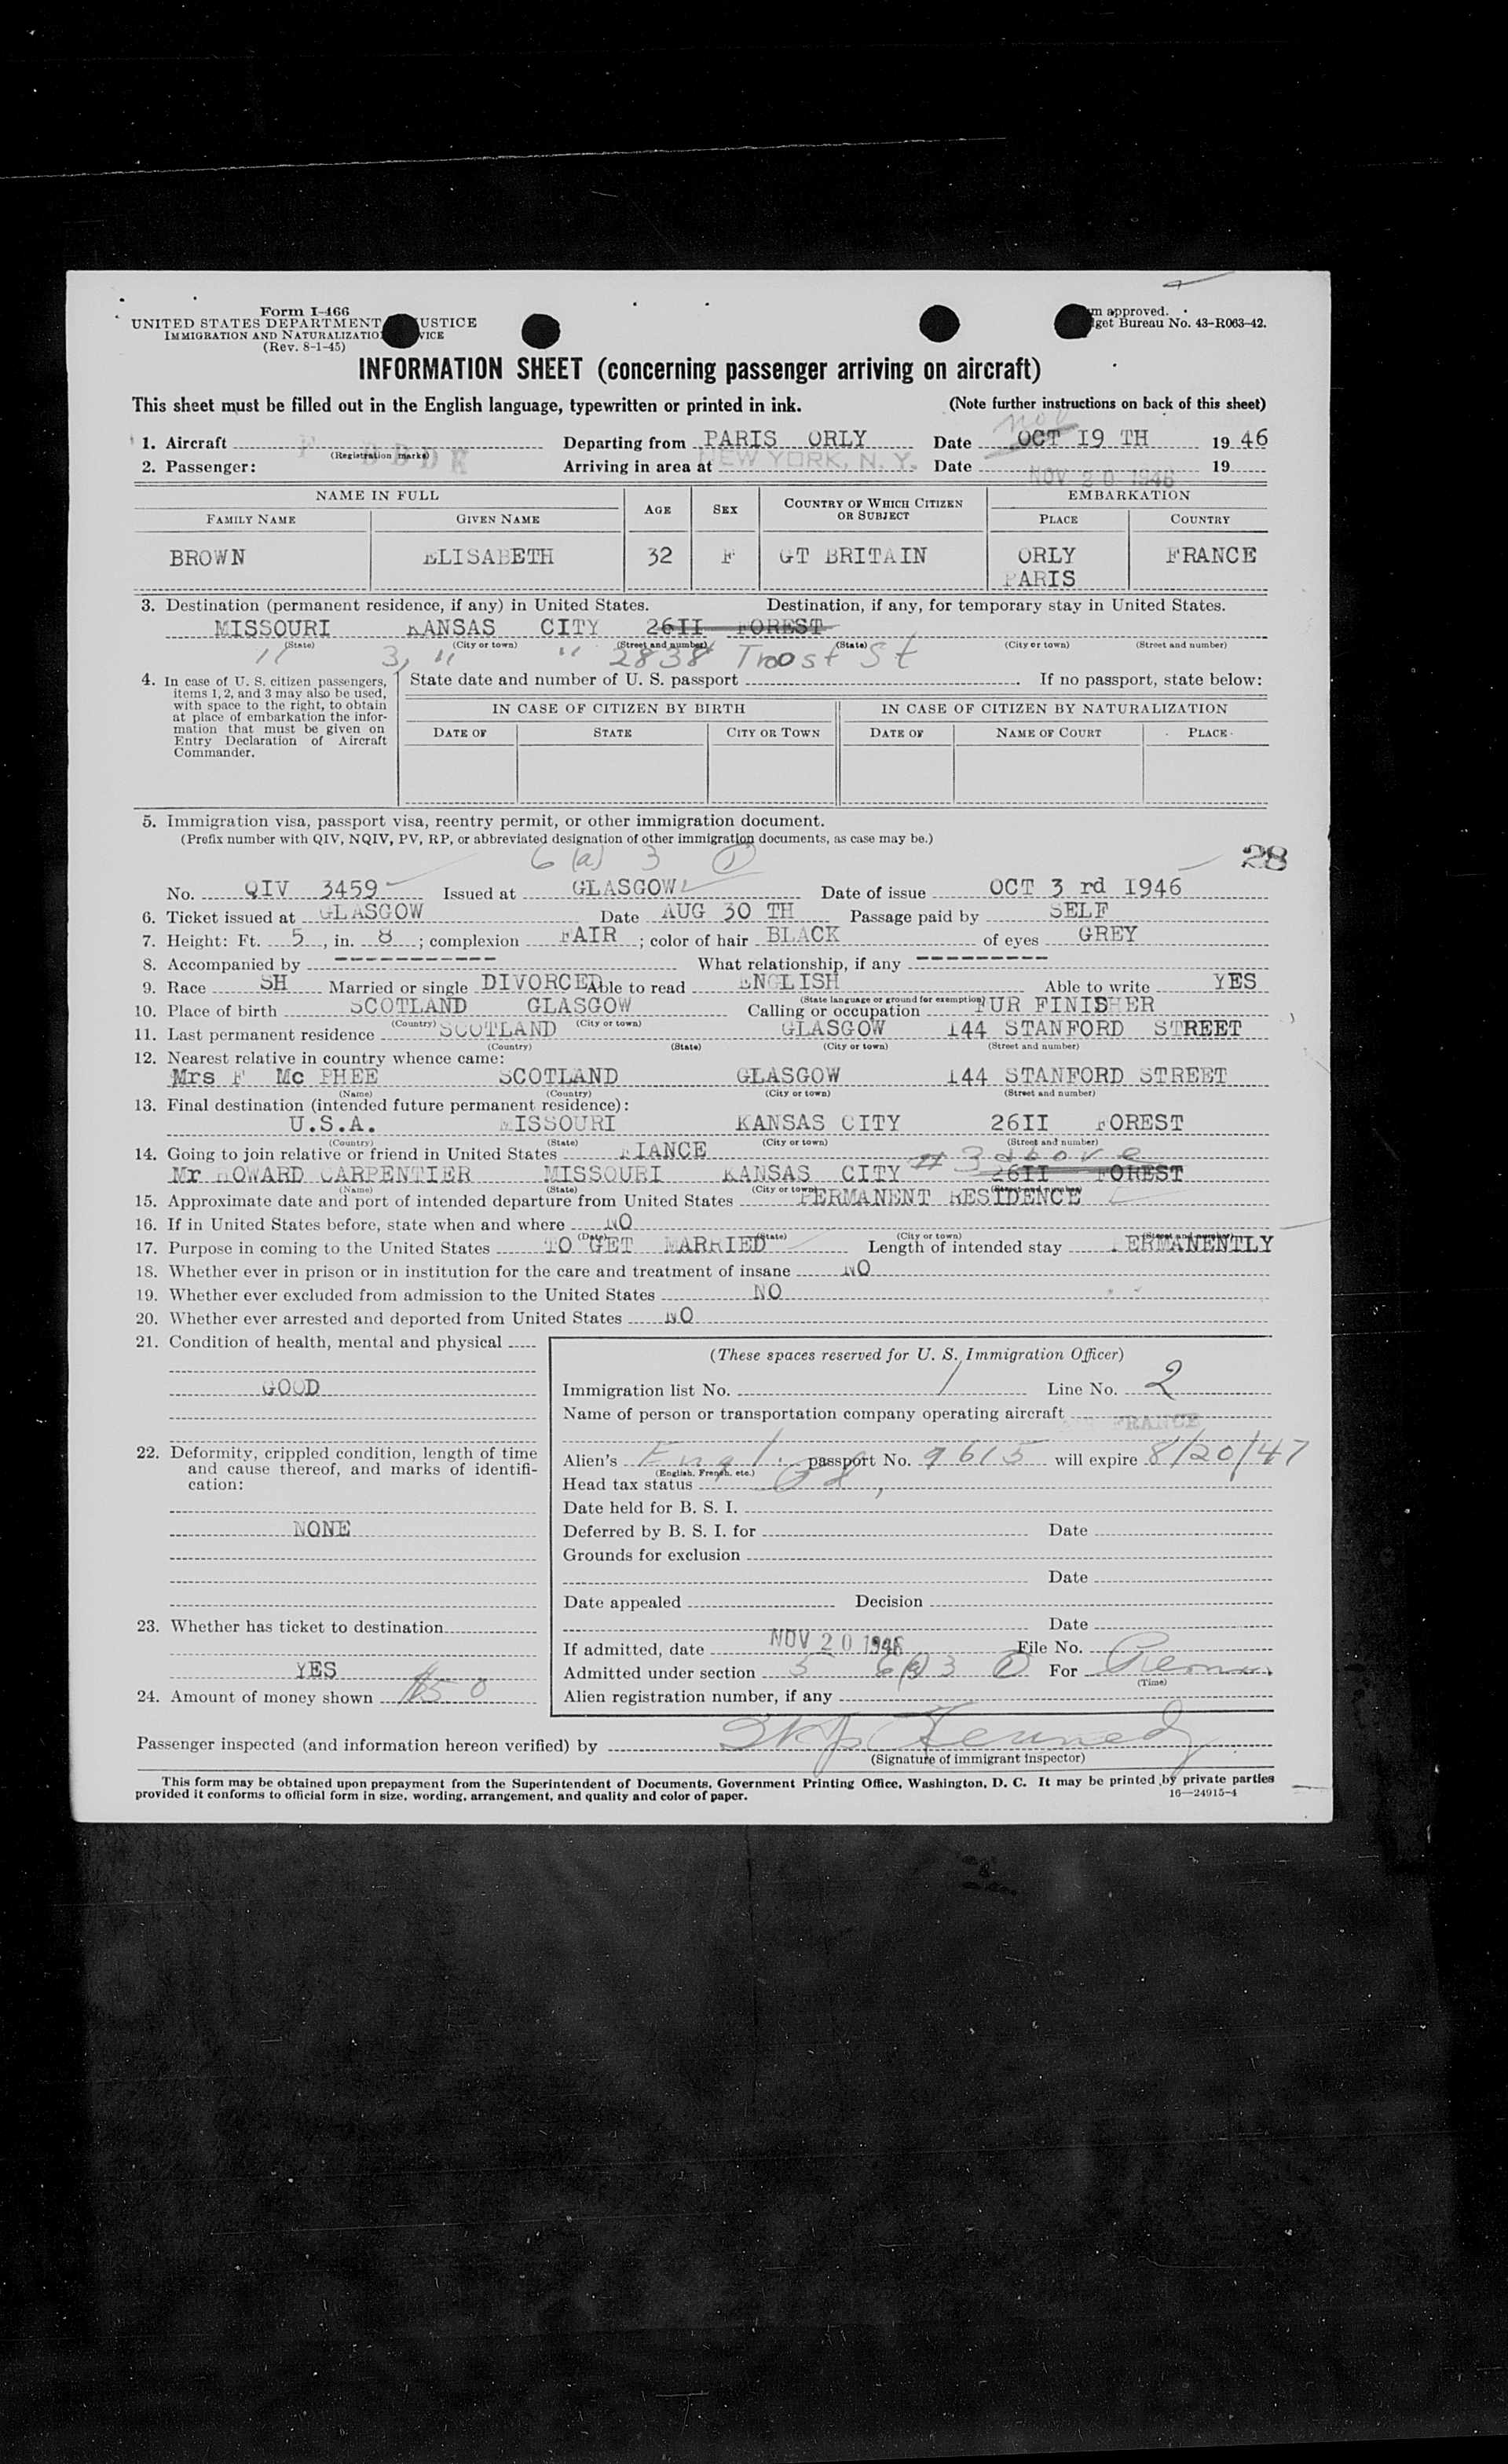 Form I-466
UNITED STATES DEPARTMENT USTICE
IMMIGRATION AND NATURALIZATIO VICE
(Rev. 8-1-45)
m approved.
get Bureau No. 43-R063-42.
INFORMATION SHEET (concerning passenger arriving on aircraft)
This sheet must be filled out in the English language, typewritten or printed in ink. (Note further instructions on back of this sheet)
Nov
1. Aircraft Departing from PARIS ORLY Date OCT 19 TH 19 46
(Registration marks)
2. Passenger: Arriving in area at NEW YORK, N. Y. Date NOV 20 1946 19
NAME IN FULL AGE SEX COUNTRY OF WHICH CITIZEN OR SUBJECT EMBARKATION
FAMILY NAME GIVEN NAME PLACE COUNTRY
BROWN ELISABETH 32 F GT BRITAIN ORLY FRANCE
PARIS
3. Destination (permanent residence, if any) in United States. Destination, if any, for temporary stay in United States.
MISSOURI KANSAS CITY 26II FOREST
(State) (City or town) (Street and number) (State) (City or town) (Street and number)
" 3, " " 2838 Troost St
4. In case of U. S. citizen passengers, items 1, 2, and 3 may also be used, with space to the right, to obtain at place of embarkation the information that must be given on Entry Declaration of Aircraft Commander.
State date and number of U. S. passport If no passport, state below:
IN CASE OF CITIZEN BY BIRTH IN CASE OF CITIZEN BY NATURALIZATION
DATE OF STATE CITY OR TOWN DATE OF NAME OF COURT PLACE
5. Immigration visa, passport visa, reentry permit, or other immigration document.
(Prefix number with QIV, NQIV, PV, RP, or abbreviated designation of other immigration documents, as case may be.)
6 (a) 3 (1) 28
No. QIV 3459 Issued at GLASGOW Date of issue OCT 3 rd 1946
6. Ticket issued at GLASGOW Date AUG 30 TH Passage paid by SELF
7. Height: Ft. 5, in. 8; complexion FAIR; color of hair BLACK of eyes GREY
8. Accompanied by ---------- What relationship, if any ----------
9. Race SH Married or single DIVORCED Able to read ENGLISH Able to write YES
(State language or ground for exemption)
10. Place of birth SCOTLAND GLASGOW Calling or occupation FUR FINISHER
(Country) (City or town)
11. Last permanent residence SCOTLAND GLASGOW 144 STANFORD STREET
(Country) (State) (City or town) (Street and number)
12. Nearest relative in country whence came:
Mrs F Mc PHEE SCOTLAND GLASGOW 144 STANFORD STREET
(Name) (Country) (City or town) (Street and number)
13. Final destination (intended future permanent residence):
U.S.A. MISSOURI KANSAS CITY 26II FOREST
(Country) (State) (City or town) (Street and number)
14. Going to join relative or friend in United States FIANCE
# 3 above
Mr HOWARD CARPENTIER MISSOURI KANSAS CITY 26II FOREST
(Name) (State) (City or town) (Street and number)
15. Approximate date and port of intended departure from United States PERMANENT RESIDENCE
16. If in United States before, state when and where NO
(Date) (State) (City or town) (Street and number)
17. Purpose in coming to the United States TO GET MARRIED Length of intended stay PERMANENTLY
18. Whether ever in prison or in institution for the care and treatment of insane NO
19. Whether ever excluded from admission to the United States NO
20. Whether ever arrested and deported from United States NO
21. Condition of health, mental and physical
GOOD
22. Deformity, crippled condition, length of time and cause thereof, and marks of identification:
NONE
23. Whether has ticket to destination
YES
24. Amount of money shown $50
(These spaces reserved for U. S. Immigration Officer)
Immigration list No. 1 Line No. 2
Name of person or transportation company operating aircraft FRANCE
Alien's Engl. passport No. 9615 will expire 8/20/47
(English, French, etc.)
Head tax status
Date held for B. S. I.
Deferred by B. S. I. for Date
Grounds for exclusion
Date
Date appealed Decision
Date
If admitted, date NOV 20 1946 File No.
Admitted under section 5 6(a)3 (1) For Perm
(Time)
Alien registration number, if any
Passenger inspected (and information hereon verified) by Kennedy
(Signature of immigrant inspector)
This form may be obtained upon prepayment from the Superintendent of Documents, Government Printing Office, Washington, D. C. It may be printed by private parties
provided it conforms to official form in size, wording, arrangement, and quality and color of paper. 16—24915-4